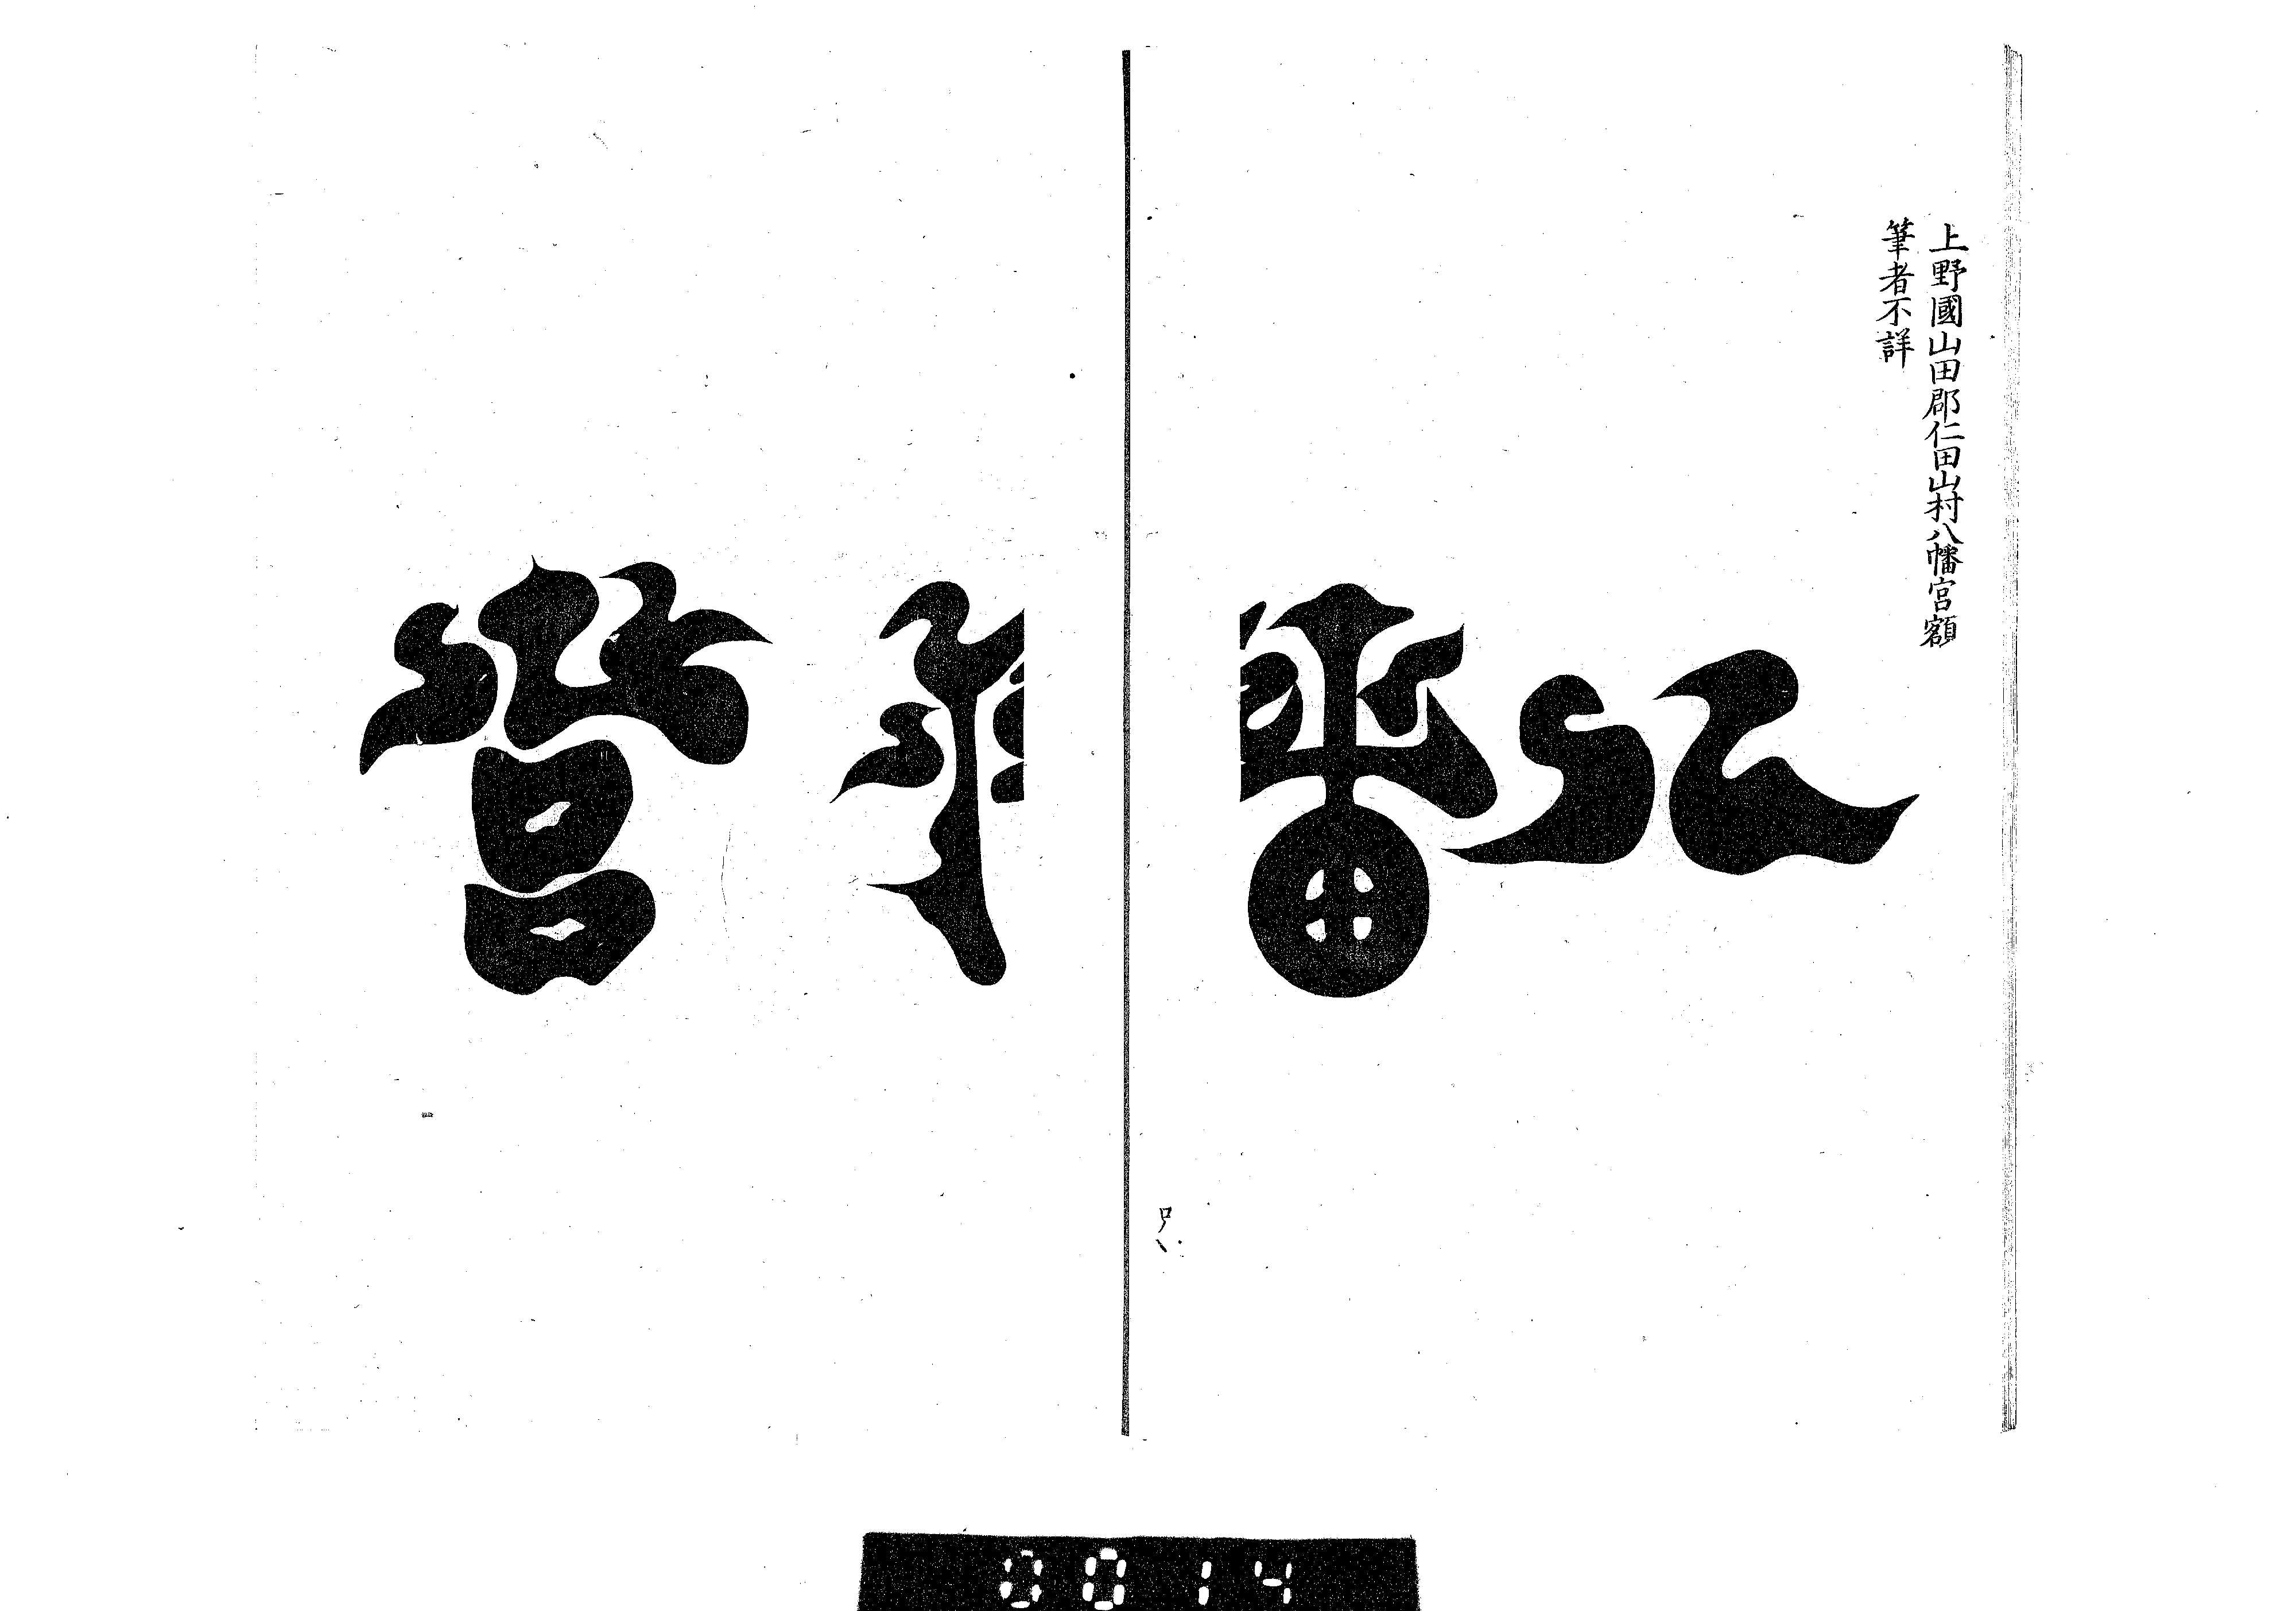 上野國山田郡仁田山村八幡宮額
筆者不詳
八幡宮
0014